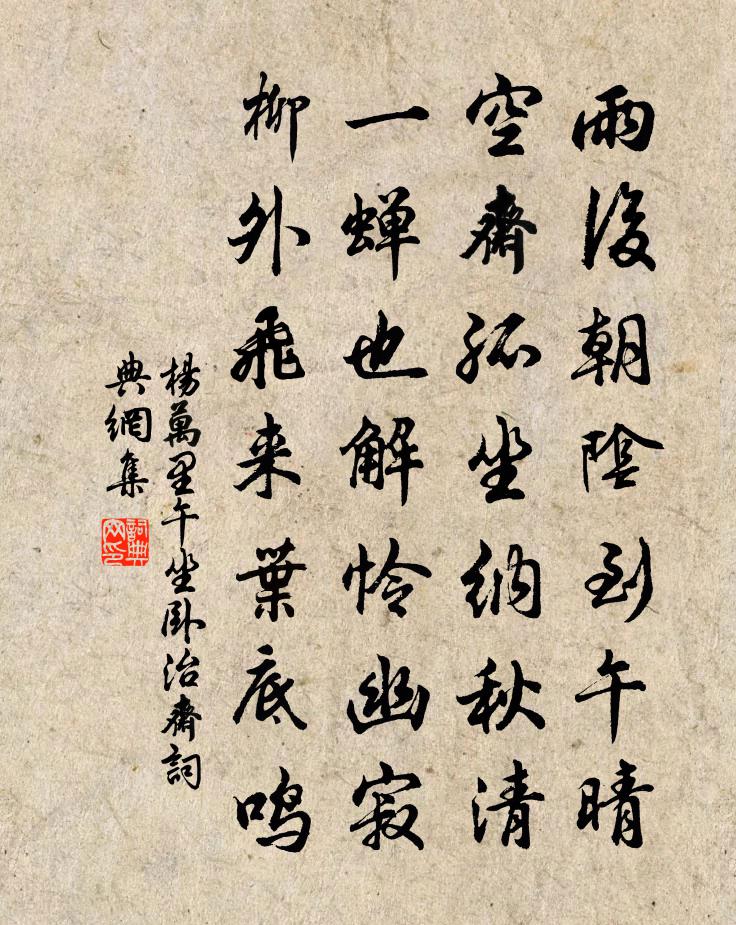 雨後朝陰到午晴
空齋孤坐納秋清
一蟬也解怜幽寂
柳外飛来葉底鳴
楊萬里午坐卧治齋詞
典網集
詞典
网印